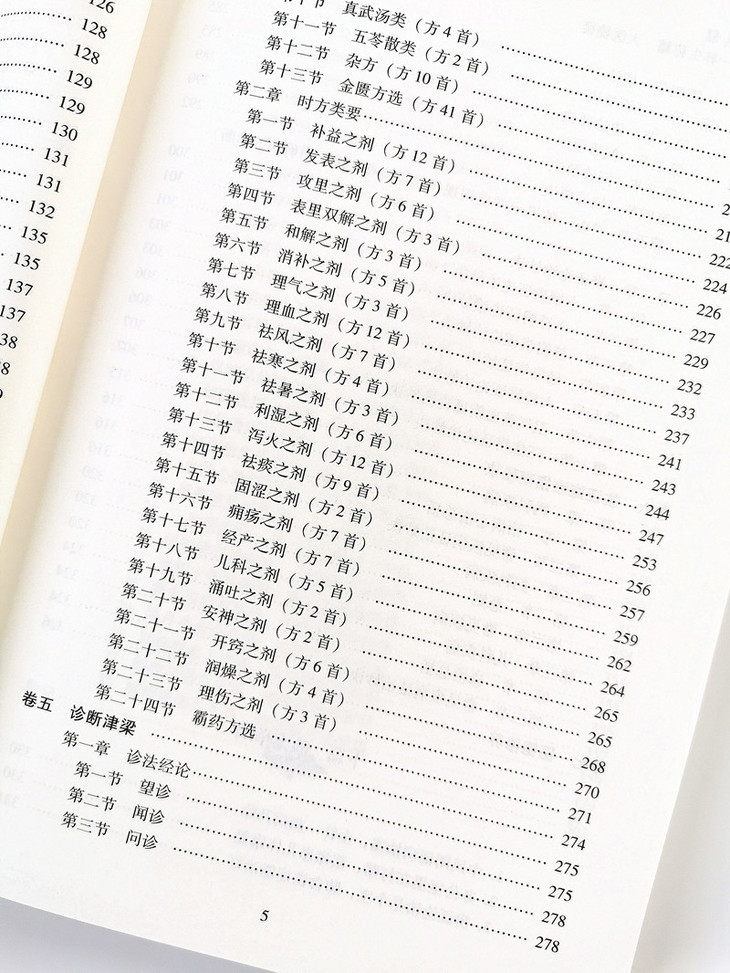 126
128
128
129
129
130
131
131
132
135
135
137
137
38
第十一节 五苓散类（方 2 首）
第十二节 杂方（方 10 首）
第十三节 金匮方选（方 41 首）
第二章 时方类要
第一节 补益之剂（方 12 首）
第二节 发表之剂（方 7 首） 222
第三节 攻里之剂（方 6 首） 224
第四节 表里双解之剂（方 3 首） 226
第五节 和解之剂（方 3 首） 227
第六节 消补之剂（方 5 首） 229
第七节 理气之剂（方 3 首） 232
第八节 理血之剂（方 12 首） 233
第九节 祛风之剂（方 7 首） 237
第十节 祛寒之剂（方 4 首） 241
第十一节 祛暑之剂（方 3 首） 243
第十二节 利湿之剂（方 6 首） 244
第十三节 泻火之剂（方 12 首） 247
第十四节 祛痰之剂（方 9 首） 253
第十五节 固涩之剂（方 2 首） 256
第十六节 痈疡之剂（方 7 首） 257
第十七节 经产之剂（方 7 首） 259
第十八节 儿科之剂（方 5 首） 262
第十九节 涌吐之剂（方 2 首） 264
第二十节 安神之剂（方 2 首） 265
第二十一节 开窍之剂（方 6 首） 265
第二十二节 润燥之剂（方 4 首） 268
第二十三节 理伤之剂（方 3 首） 270
第二十四节 霸药方选 271
卷五 诊断津梁 274
第一章 诊法经论 275
第一节 望诊 275
第二节 闻诊 278
第三节 问诊 278
5